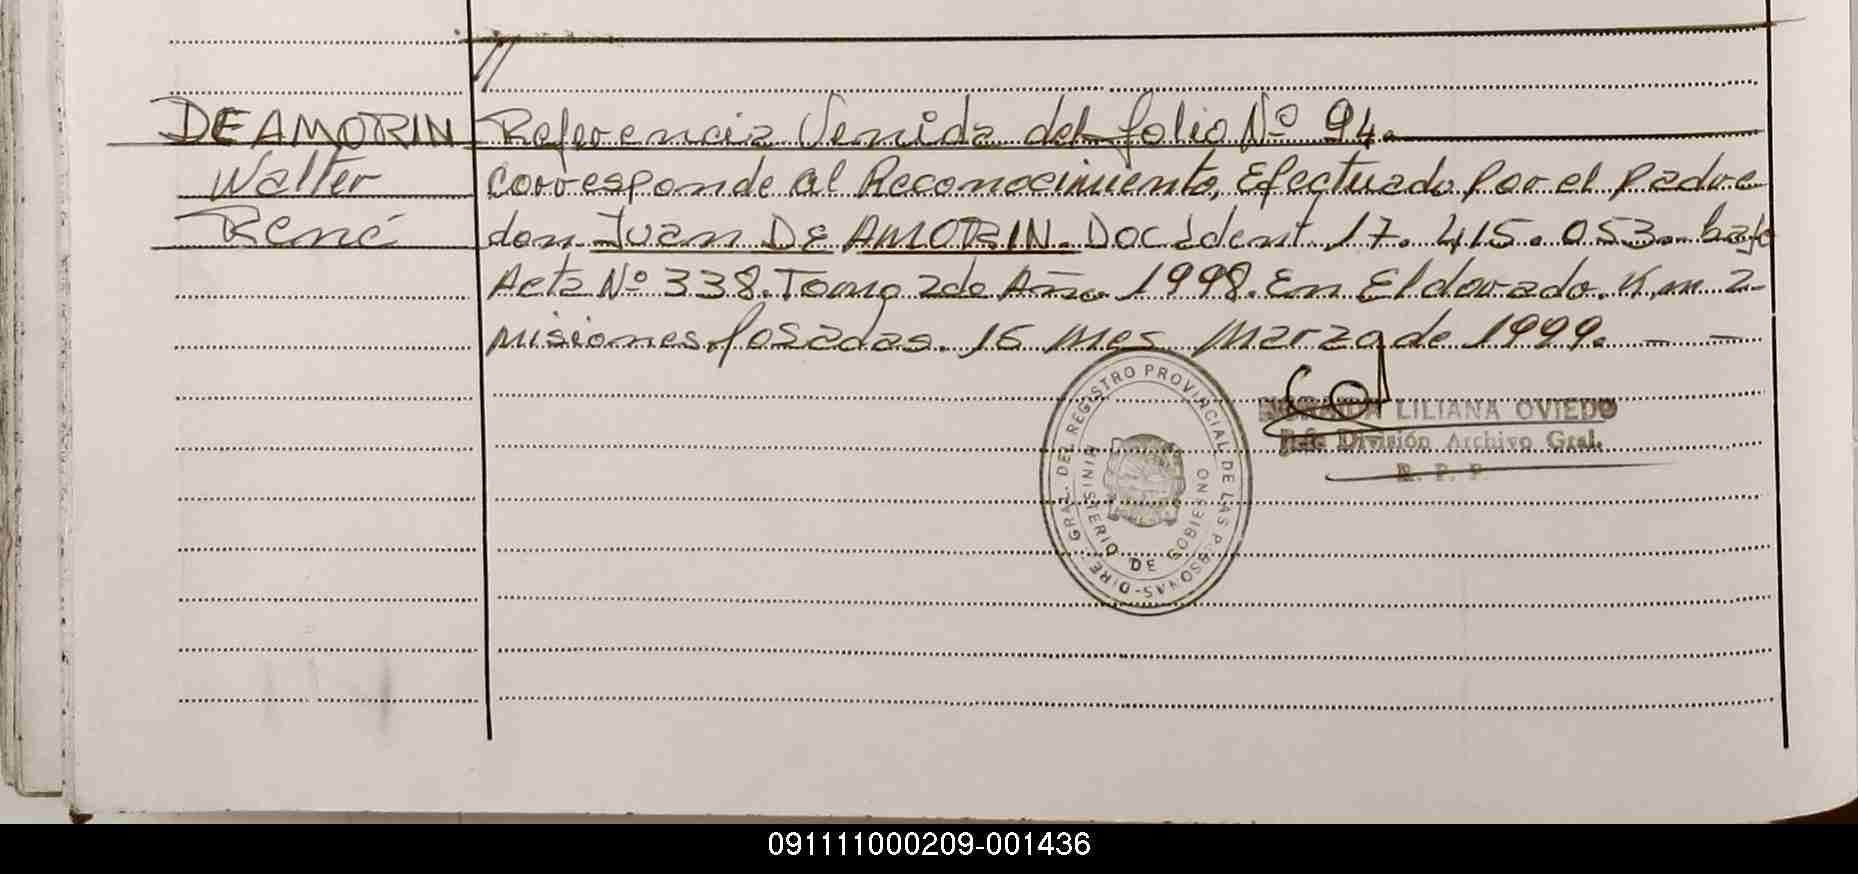 //
DE AMORIN Referencia Venida del folio Nº 94.
Walter corresponde al Reconocimiento, Efectuado por el padre
René don Juan DE AMORIN. Doc Ident. 17.415.053. bajo
Acta Nº 338. Tomo 2do Año 1998. En Eldorado. Km 2-
misiones. Posadas. 15 mes Marzo de 1999. - -
LILIANA OVIEDO
Jefe División Archivo Gral.
R. P. P.
DIRE. GRAL. DEL REGISTRO PROVINCIAL DE LAS PERSONAS-
MINISTERIO DE GOBIERNO
091111000209-001436